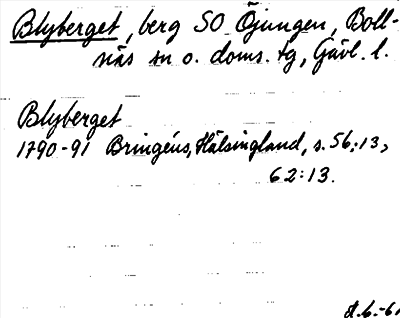 Blyberget, berg SO Öjungen, Boll-
näs sn o. doms. tg, Gävl. l.
Blyberget
1790-91 Bringéus, Hälsingland, s. 56:13,
62:13.